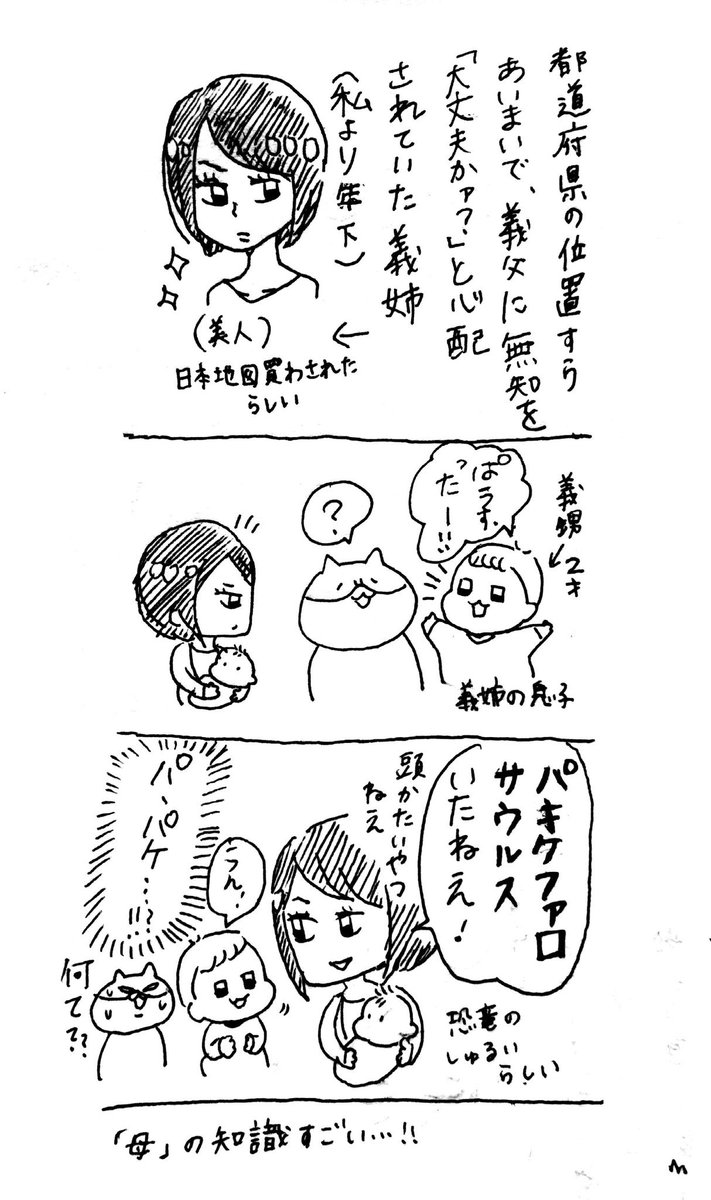 都道府県の位置すら
あいまいで、義父に無知を
「大丈夫かァ?」と心配
されていた義姉
(私より年下)
←
(美人)
日本地図買わされた
らしい
ぱうす、
たーー!!
?
義甥 2才
義姉の息子
パキケファロ
サウルス
いたねえ!
頭かたいやつ
ねえ
うん!
パ、パケ…!!?
何て??
恐竜の
しゅるい
らしい
「母」の知識すごい…!!